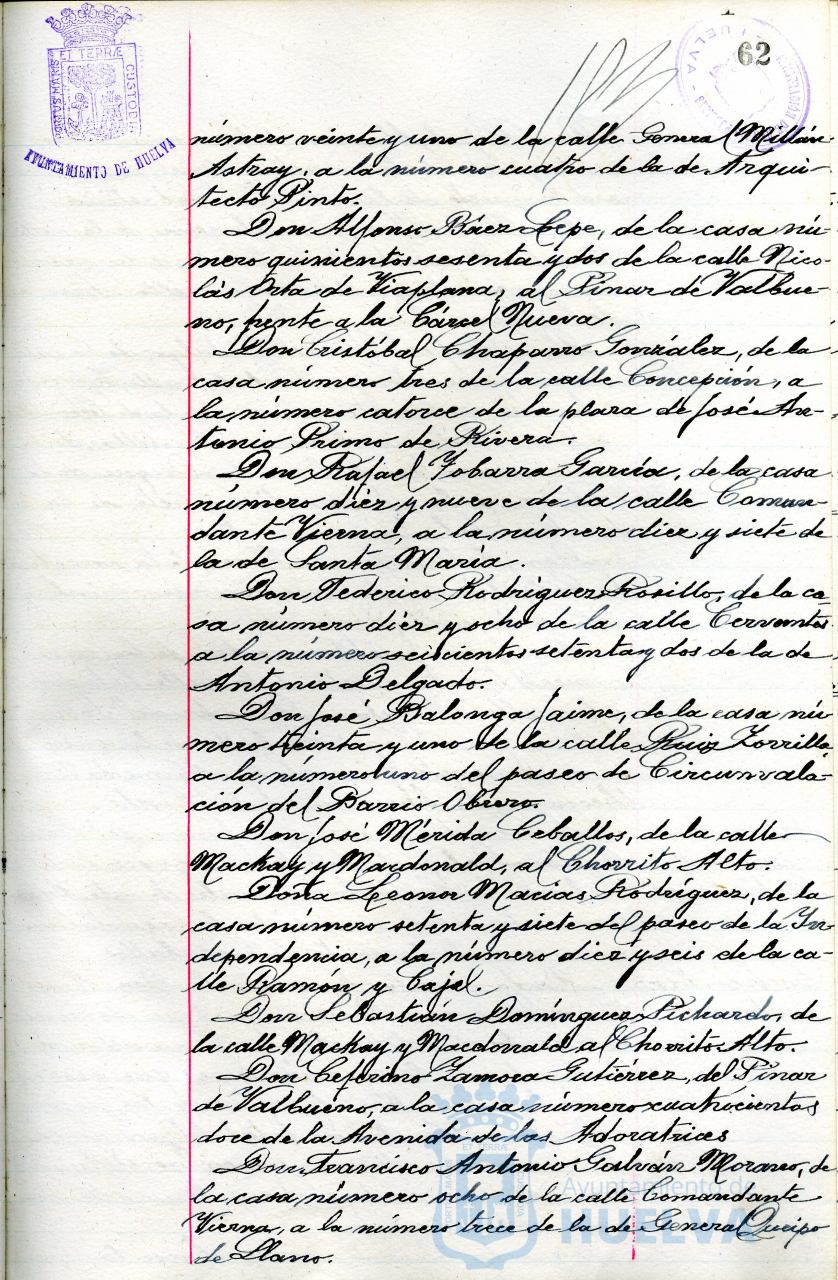 62
PORTUS MARIS ET TERRÆ CUSTODIA
AYUNTAMIENTO DE HUELVA
número veinte y uno de la calle General Millán-
Astray, a la número cuatro de la de Arqui-
tecto Pinto.
Don Alfonso Báez Lepe, de la casa nú-
mero quinientos sesenta y dos de la calle Nico-
lás Orta de Viaplana, al Pinar de Valbue-
no, frente a la Cárcel Nueva.
Don Cristóbal Chaparro González, de la
casa número tres de la calle Concepción, a
la número catorce de la plaza de José An-
tonio Primo de Rivera.
Don Rafael Ybarra García, de la casa
número diez y nueve de la calle Coman-
dante Vierna, a la número diez y siete de
la de Santa María.
Don Federico Rodríguez Rosillo, de la ca-
sa número diez y ocho de la calle Cervantes
a la número seiscientos setenta y dos de la de
Antonio Delgado.
Don José Balonga Jaime, de la casa nú-
mero treinta y uno de la calle Ruiz Zorrilla,
a la número uno del paseo de Circunvala-
ción del Barrio Obrero.
Don José Mérida Ceballos, de la calle
Mackay y Macdonald, al Chorrito Alto.
Doña Leonor Macías Rodríguez, de la
casa número setenta y siete del paseo de la In-
dependencia, a la número diez y seis de la ca-
lle Ramón y Cajal.
Don Sebastián Domínguez Pichardo, de
la calle Mackay y Macdonald al Chorrito Alto.
Don Ceferino Zamora Gutiérrez, del Pinar
de Valbueno, a la casa número cuatrocientos
doce de la Avenida de las Adoratrices
Don Francisco Antonio Galván Morano, de
la casa número ocho de la calle Comandante
Vierna, a la número trece de la de General Queipo
de Llano.
Ayuntamiento de
HUELVA